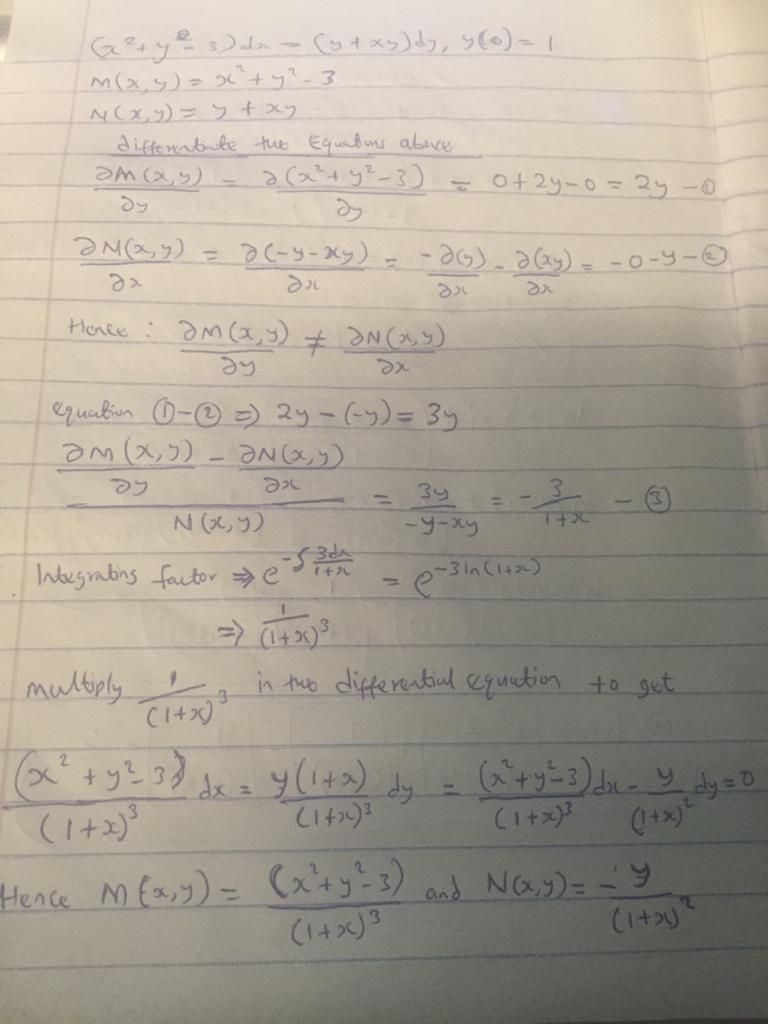 (x² + y² - 3)dx = (y + xy)dy, y(0) = 1
M(x, y) = x² + y² - 3
N(x, y) = y + xy
differentiate two Equations above
∂M(x, y)/∂y = ∂(x² + y² - 3)/∂y = 0 + 2y - 0 = 2y - ①
∂N(x, y)/∂x = ∂(-y - xy)/∂x = -∂(y)/∂x - ∂(xy)/∂x = -0 - y - ②
Hence : ∂M(x, y)/∂y ≠ ∂N(x, y)/∂x
equation ① - ② ⇒ 2y - (-y) = 3y
(∂M(x, y)/∂y - ∂N(x, y)/∂x)/N(x, y) = 3y/(-y - xy) = -3/(1+x) - ③
Integrating factor ⇒ e^(-∫3dx/(1+x)) = e^(-3ln(1+x))
⇒ 1/(1+x)³
multiply 1/(1+x)³ in two differential equation to get
(x² + y² - 3)/(1+x)³ dx = y(1+x)/(1+x)³ dy = (x² + y² - 3)/(1+x)³ dx - y/(1+x)² dy = 0
Hence M(x, y) = (x² + y² - 3)/(1+x)³ and N(x, y) = -y/(1+x)²